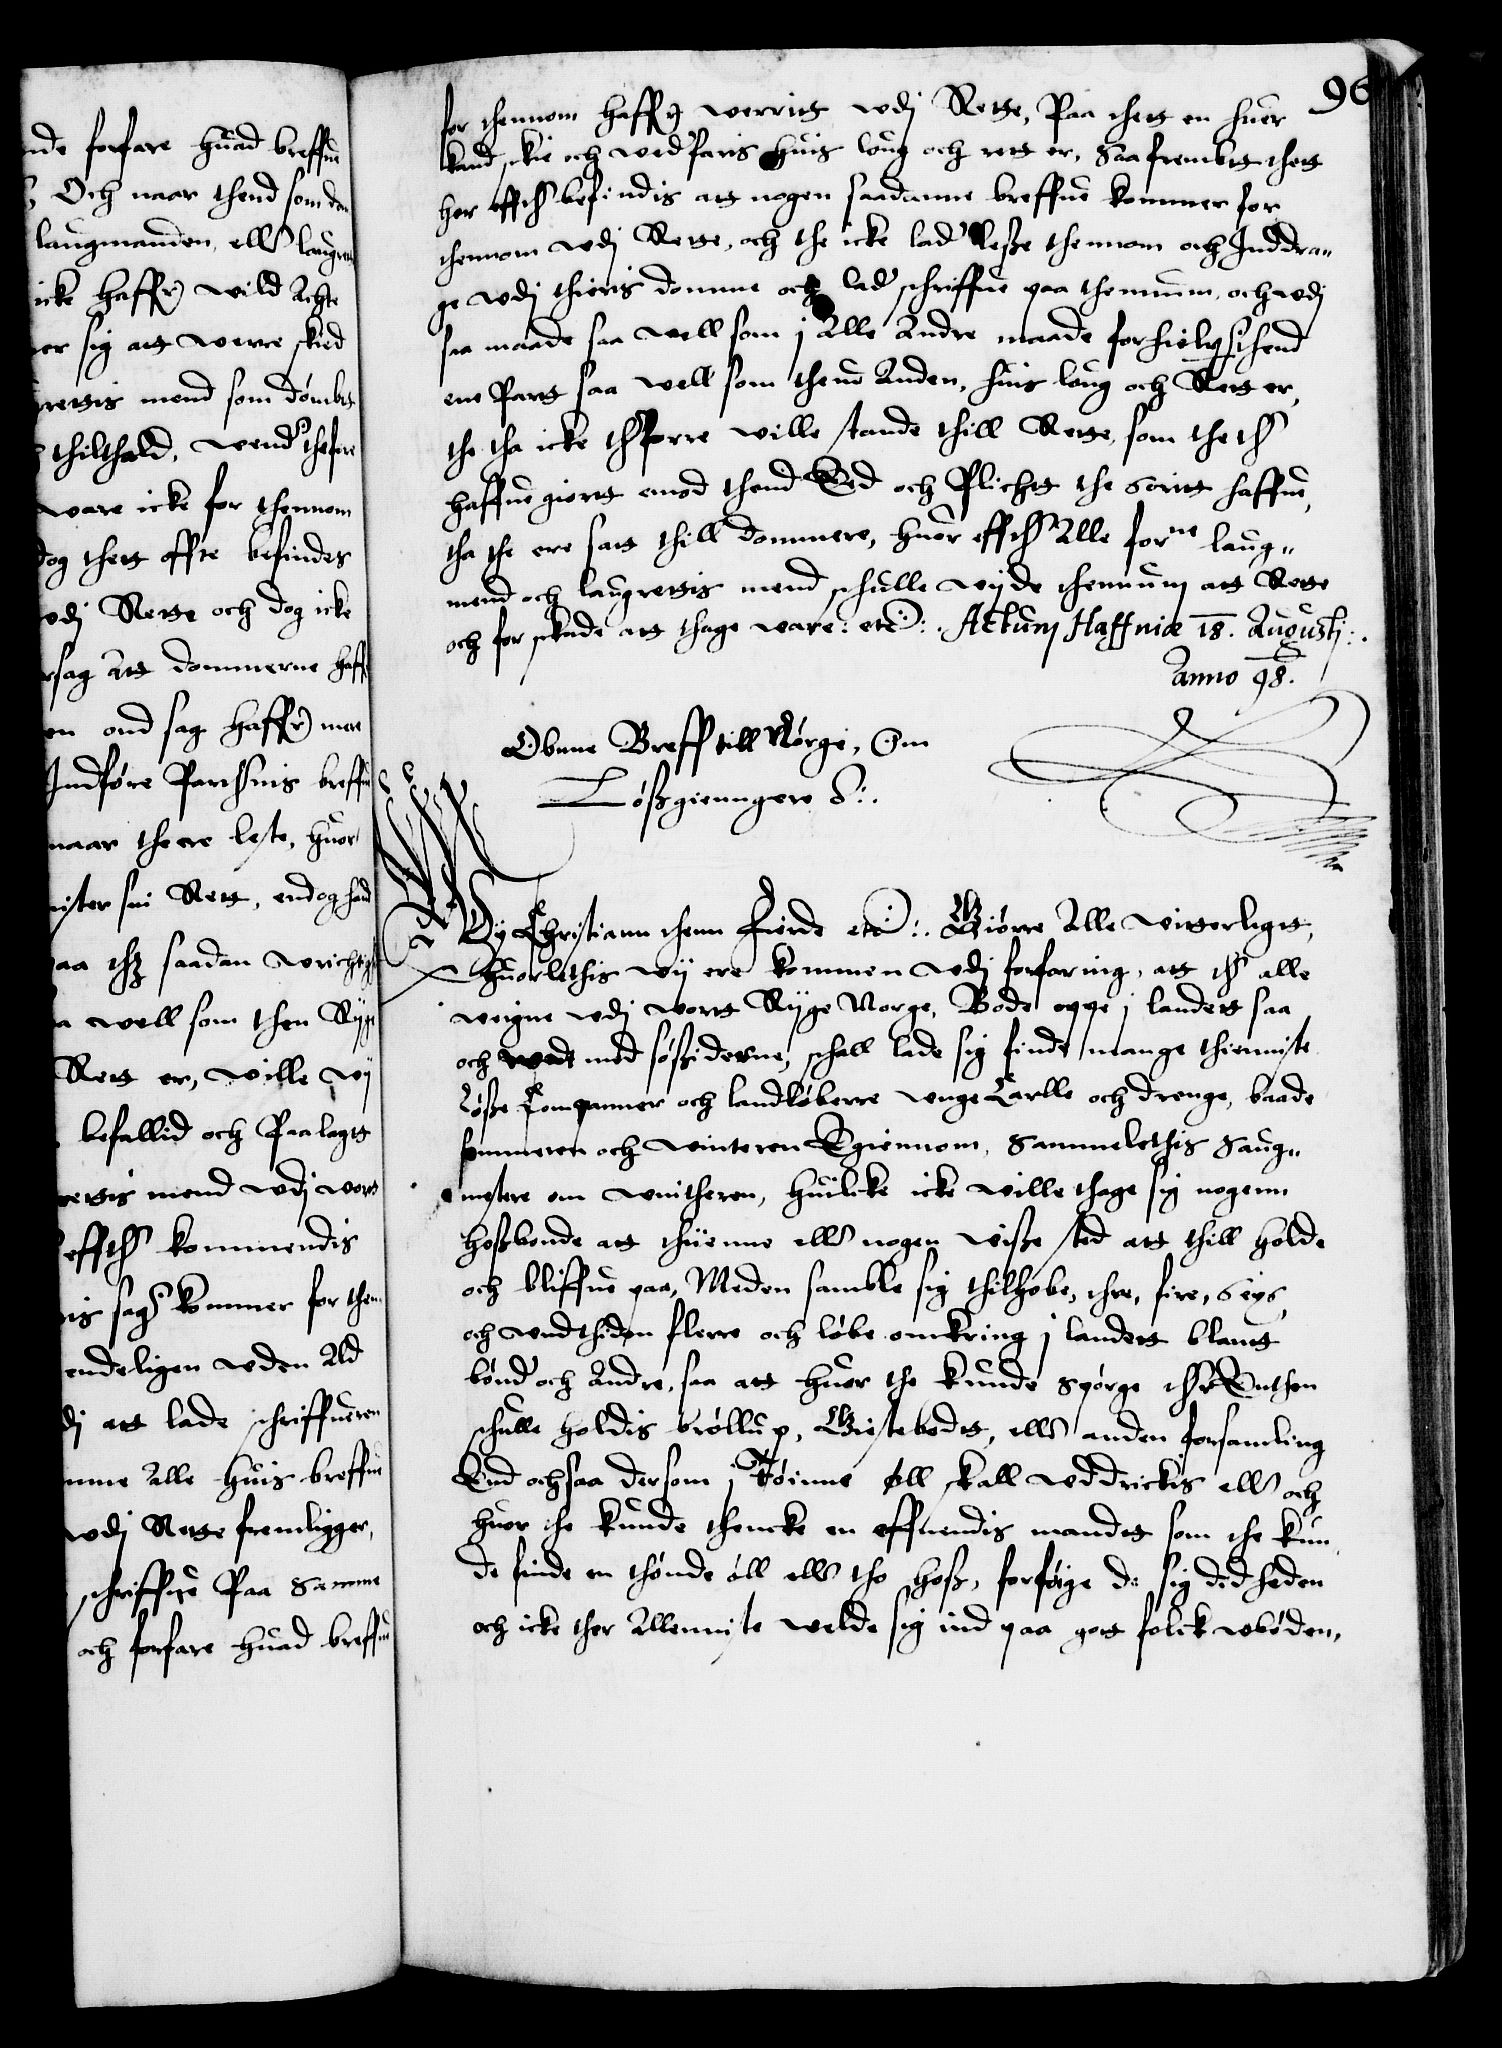 nde forfare huad breffue
Och naar thend som
laugmanden, eller laugret
icke haffuer wild Achte
er sig att werre skied
rettis mend som dømbt
thiltald, wend
ware icke for thennom
dog thett offte befindes
wdj Rette och dog icke
rsag Att dommerne haff
en ond sag haffuer mere
Indføre Parthernis breffue
naar the ere leste, huor
mister sin Rett, endog hand
aa saadan wrichtig
a well som then Rige
Rett er, wille wij
befallid och Paalagt
rettis mend wdj wort
effther kommendis
is sager kommer for them
endeligen wden Ald
dj att lade schriffueren
mme Alle huis breffue
wdj Rette fremligger,
schriffue Paa samme
och forfare huad breffue
96
for thennom haffuer werritt wdj Rette, Paa thett en huer
kand skie och wedfaris huis loug och rett er, Saafrembt thett
her effther befindis att nogen saadanne breffue kommer for
thennom wdj Rette, och the icke lader leße thennom och Inddra„
ge wdj thieris domme och lader schriffue paa thennum, och wdj
saa maade saa well som j Alle Andre maade forhielper thend
ene Part saa well som thend Anden, huis loug och Rett er,
the tha icke therforre wille stande thill Rette, som the ther
haffue giortt emod thend Eed och Plicht the soritt haffue,
tha the ere satt thill dommere, huor effther Alle forne laug„
mend och laugrettis mend schulle wyde thennum att Rette
och for skade att thage ware: etc:. Actum Haffniæ 18. Augustj:.
Anno 98.
Obnne Breff till Nørge, Om
Løßgienngere :.
Wy Christiann thenn Fierde etc:. Giørre Alle witterligt,
Huorlethis wij ere kommen wdj forfaring, att ther alle
weigne wdj wort Rige Norge, Bode oppe j landet saa
och med søßiderne, schall lade sig finde mange thienniste
Løße Companner och landkøberre unge Karlle och drenge, baade
sommeren och winteren Egiennom, Sammelethis Saug„
mestere om wintheren, huilcke icke wille thage sig nogenn
hoßbonde att thiienne eller nogen wiße sted att thill holde
och bliffue paa, Meden samble sig thilhobe, thre, fire, Seys
och undthiden flerre och løbe omkring j landett blant
bønder och Andre, saa att huor the kunde spørge ther Enthen
schulle holdis brøllup, Giestebodt, eller anden forsamling
End ochsaa dersom j Køinne Øll skall wddrickis eller och
huor the kunde thencke en effuendis mandt som the kun
de finde en thønde øll eller tho hoß, forføige de sig did heden
och icke ther Allenniste welde sig ind paa gott folck wbøden,